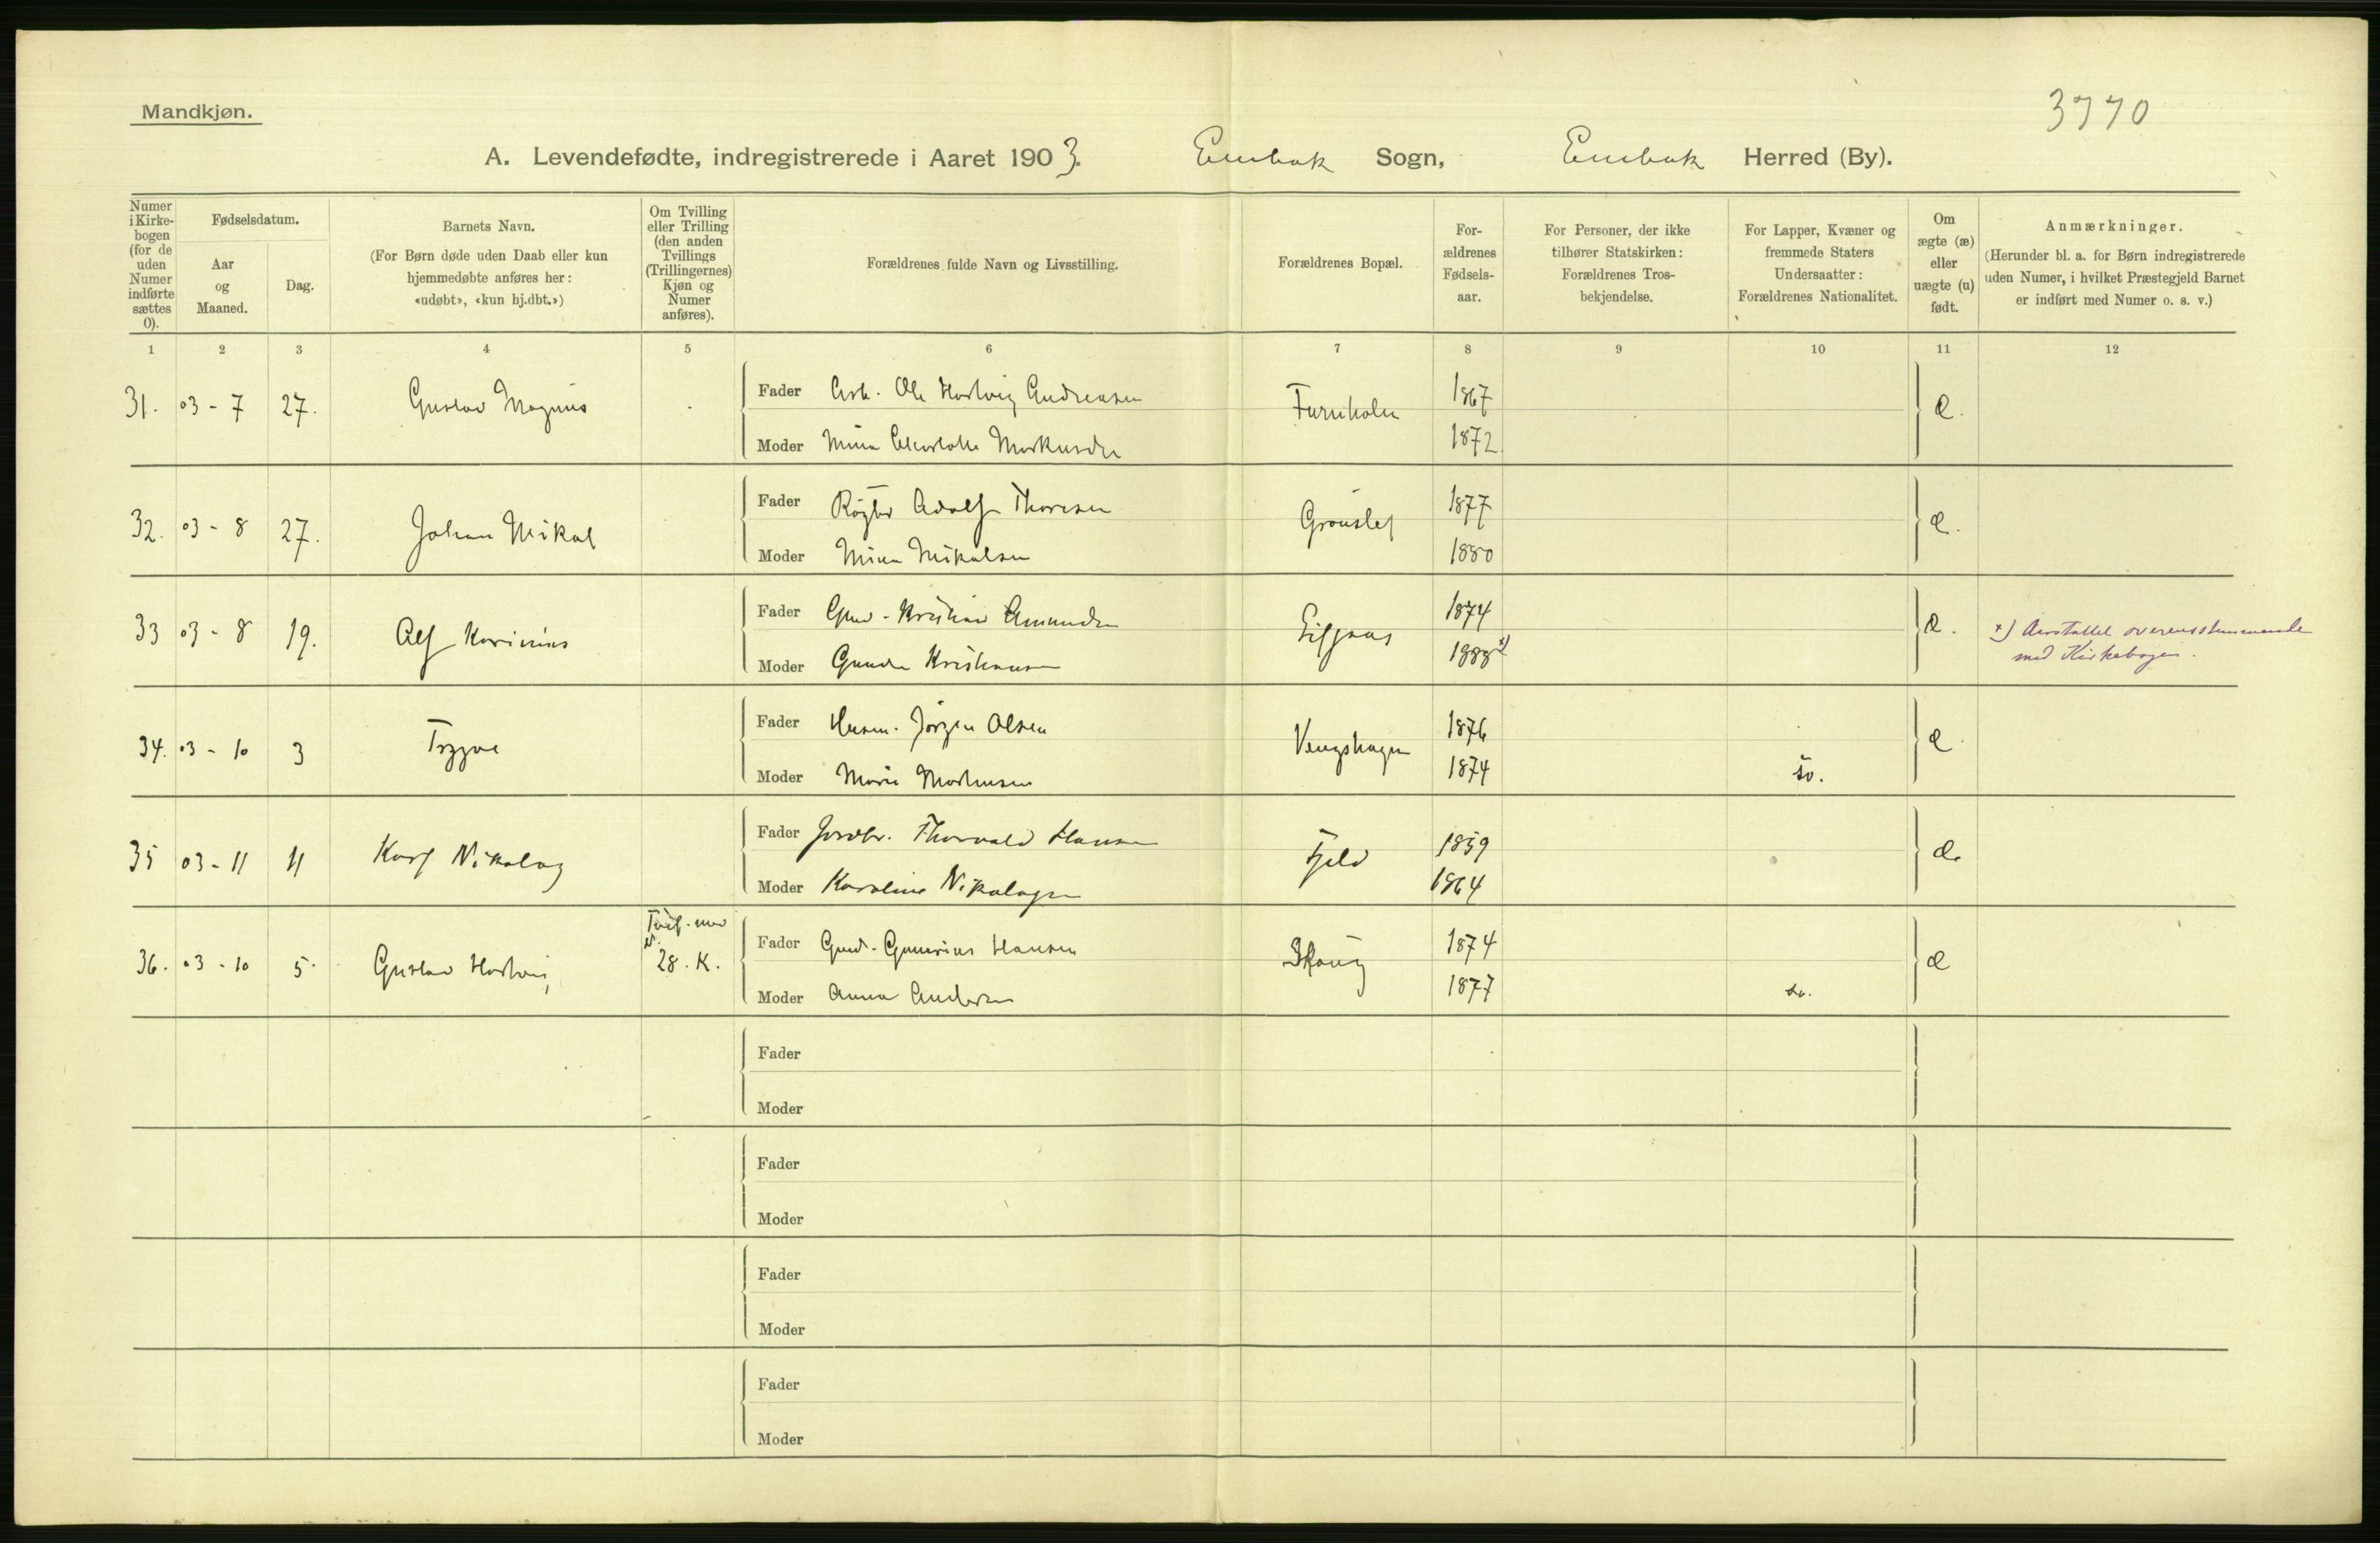 Mandkjøn.
3770
A. Levendefødte, indregistrerede i Aaret 1903. Enebak Sogn, Enebak Herred (By).
Numer i Kirkebogen (for de uden Numer indførte sættes 0).
Fødselsdatum.
Aar og Maaned.
Dag.
Barnets Navn.
(For Børn døde uden Daab eller kun hjemmedøbte anføres her: «udøbt», «kun hj.dbt.»)
Om Tvilling eller Trilling (den anden Tvillings (Trillingernes) Kjøn og Numer anføres).
Forældrenes fulde Navn og Livsstilling.
Forældrenes Bopæl.
For-ældrenes Fødsels-aar.
For Personer, der ikke tilhører Statskirken: Forældrenes Tros-bekjendelse.
For Lapper, Kvæner og fremmede Staters Undersaatter: Forældrenes Nationalitet.
Om ægte (æ) eller uægte (u) født.
Anmærkninger.
(Herunder bl. a. for Børn indregistrerede uden Numer, i hvilket Præstegjeld Barnet er indført med Numer o. s. v.)
1 2 3 4 5 6 7 8 9 10 11 12
31. 03 - 7 27. Gustav Magnus Fader Arb. Ole Hartvig Andreasen Furuholm 1867 æ.
Moder Mina Charlotte Markusdr 1872
32. 03 - 8 27. Johan Mikal Fader Røgter Adolf Thoresen 1877 æ.
Moder Mina Mikalsen 1880
33 03 - 8 19. Alf Karinius Fader Gmd. Kristian Amundsen 1874 æ. x) Aarstallet overensstemmende
Moder Gunda Kristiansen 1888 x) med Kirkebogen.
34. 03 - 10 3 Trygve Fader Husm. Jørgen Olsen Vengshagen 1876 æ
Moder Marie Mortensen 1874 sv.
35 03 - 11 11 Karl Nikolay Fader Jordbr. Thorvald Hansen Fjeld 1859 æ
Moder Karoline Nikolaysen 1864
36. 03 - 10 5. Gustav Hartvig Tvill. med
28. K. Fader Gmd. Gunerius Hansen Skaug 1874 æ
Moder Anna Andersen 1877 sv.
Fader
Moder
Fader
Moder
Fader
Moder
Fader
Moder